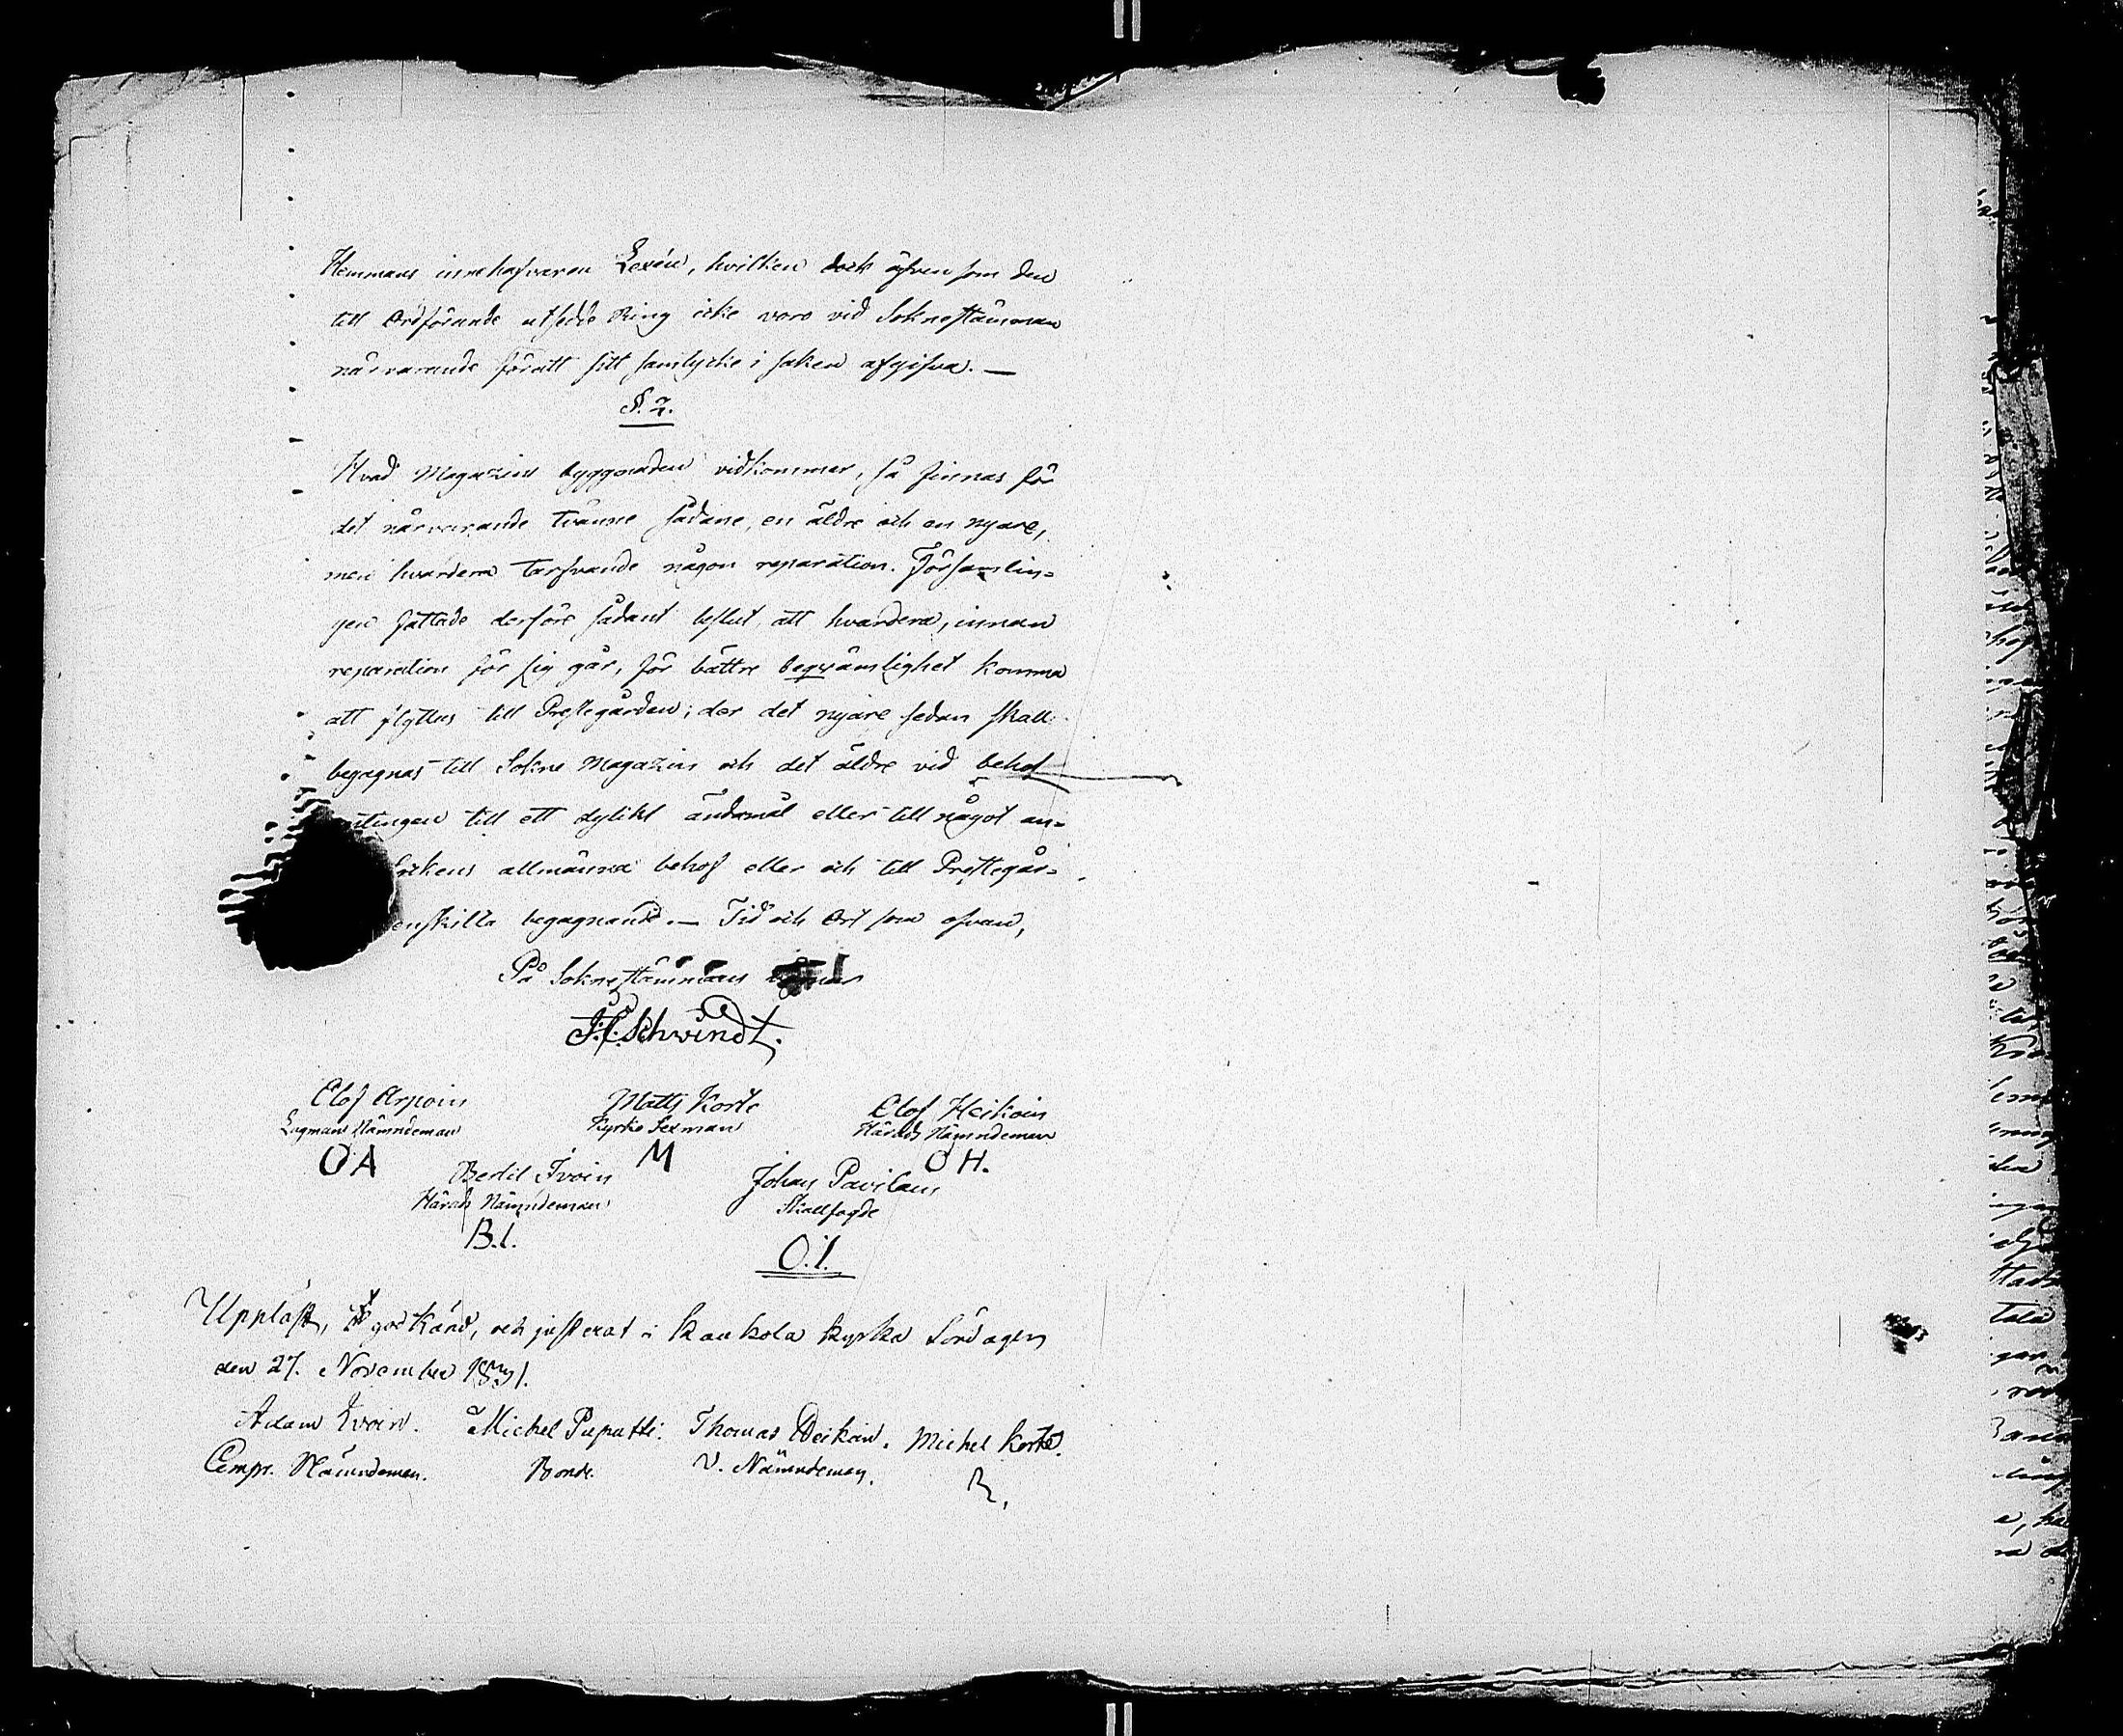 Hemmans innehafvaren Lexén, hvilken dock äfven som den
till Ordförande utsedde Ring icke voro vid Soknestämman
närvarande för att sitt samtycke i saken afgifva. —
§. 2.
Hvad Magazins byggnaden vidkommer, så finnas för
det närvarande tvänne sådane, en äldre och en nyare,
men hvardera tarfvande någon reparation. Församlin=
gen fattade derföre sådant beslut, att hvardera, innan
reparation för sig går, för bättre beqvämlighet komma
att flyttas till Prestegården; der det nyare sedan skall
begagnas till Sokne Magazin och det äldre vid behof
ntingen till ett dylikt ändamål eller till något an=
Sockens allmänna behof eller och till Prestegår=
enskilta begagnande. — Tid och Ort som ofvan,
På Sokne stämmans
J. F. Schwindt.
Olof Arpoin Matts Korte Olof Heikoin
Lagmans Nämndeman Kyrko Sexman Härads Nämndeman
OA M OH.
Bertil Ivoin Johan Pavilain
Härads Nämndeman Skallfogde
B.I. O.I.
Uppläst, godkänd, och justerat i Kaukola kyrka Söndagen
den 27. November 1831.
Adam Ivoin. Michel Puputti. Thomas Heikoin. Michel Korte.
Nämndeman. Bonde. V. Nämndeman.